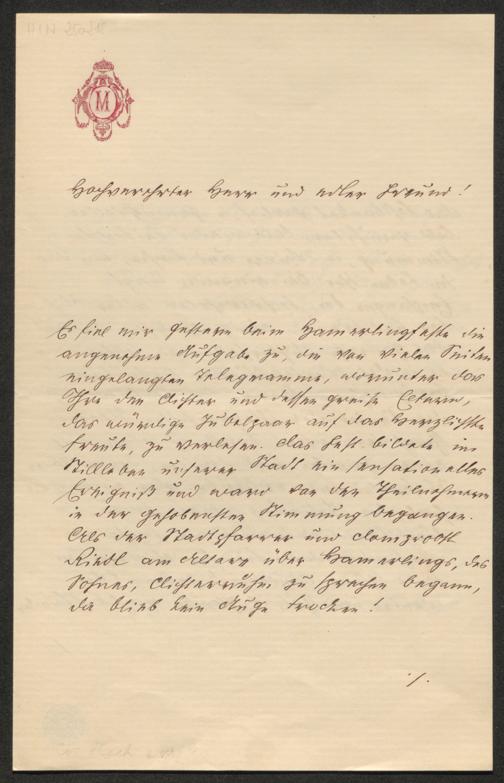 M
Hochverehrter Herr und edler Freund!
Es fiel mir gestern beim Hamerlingfeste die
angenehme Aufgabe zu, die von vielen Seiten
eingelangten Telegramme, worunter das
Ihre den Dichter und dessen greise Eltern,
das würdige Jubelpaar auf das Herzlichste
freute, zu verlesen. Das Fest bildete im
Stillleben unserer Stadt ein sensationelles
Ereigniß und ward von den Theilnehmern
in der gehobensten Stimmung begangen.
Als der Stadtpfarrer und Domprobst
Riedl am Altare über Hamerlings, des
Sohnes, Dichterruhm zu sprechen begann,
da blieb kein Auge trocken!
./.